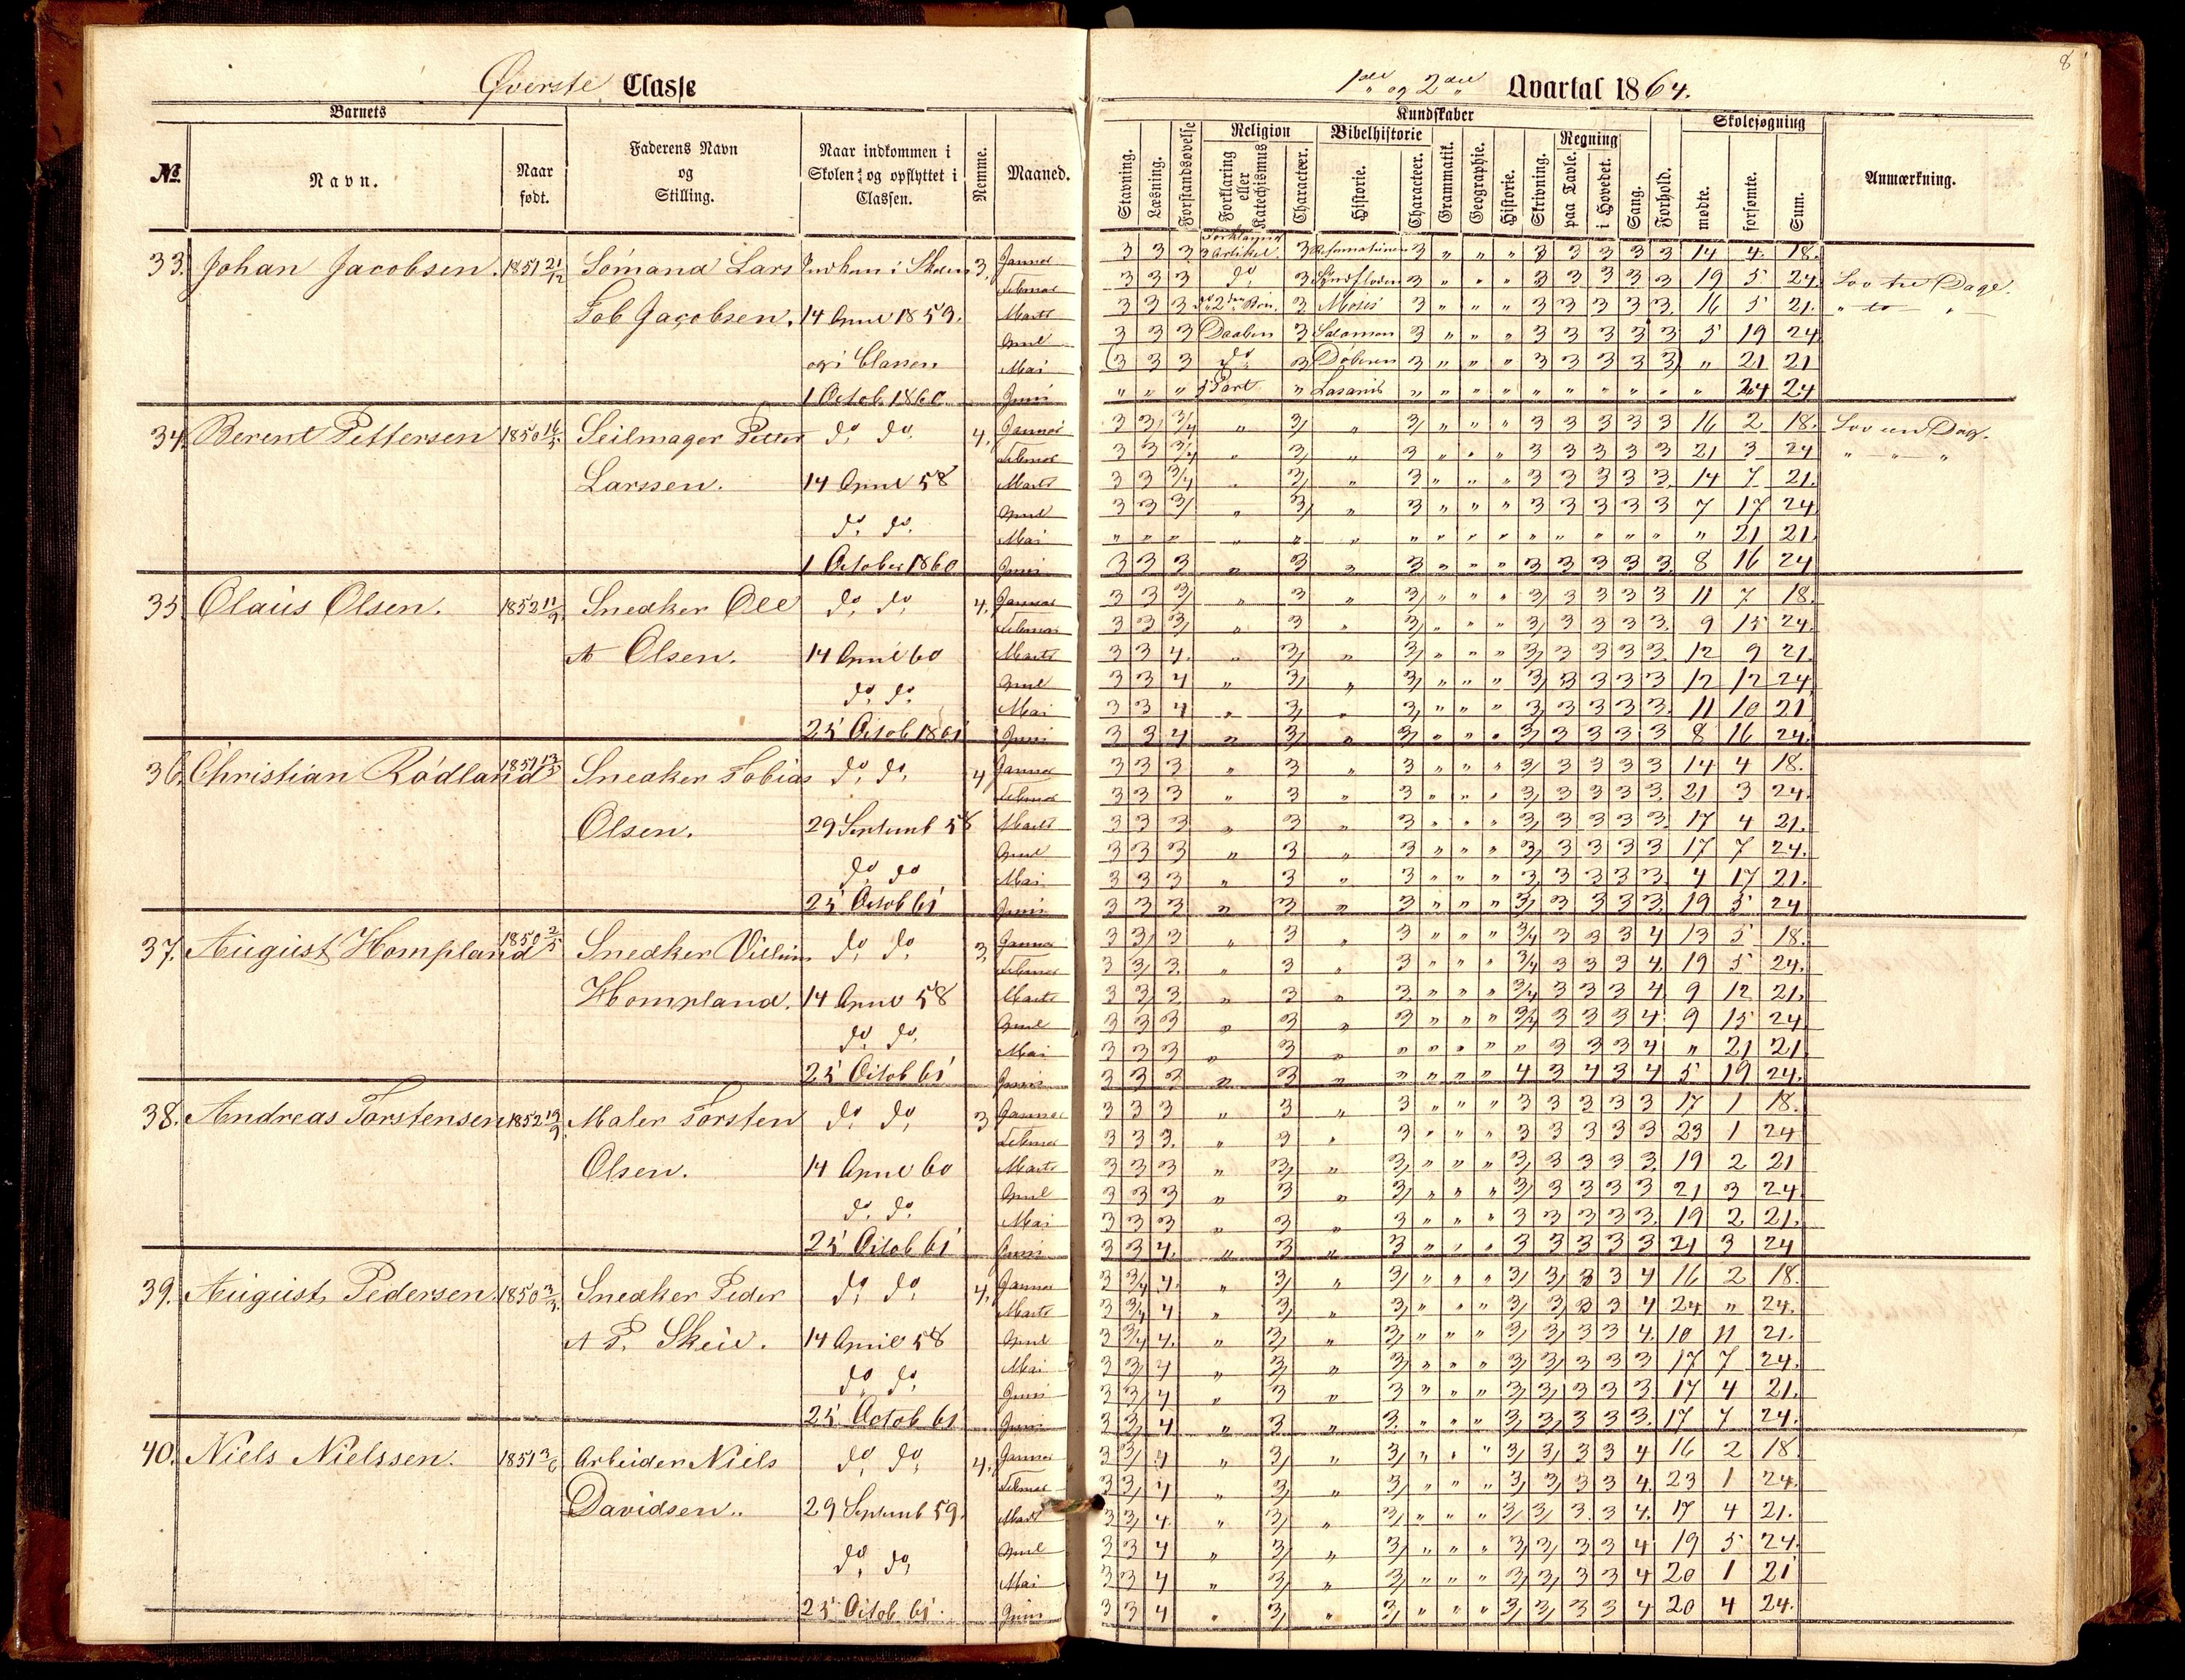 8
Øverste Classe
1ste og 2den Qvartal 1864.
Barnets
Kundskaber
Skolesøgning
№
Navn.
Naar født.
Faderens Navn og Stilling.
Naar indkommen i Skolen og opflyttet i Classen.
Nemme.
Maaned.
Stavning.
Læsning.
Forstandsøvelse
Religion
Forklaring eller Katechismus
Character.
Bibelhistorie
Historie.
Character.
Grammatik.
Geographie.
Historie.
Skrivning.
Regning
paa Tavle.
i Hovedet.
Sang.
Forhold.
mødte.
forsømte.
Sum.
Anmærkning.
33. Johan Jacobsen. 1851 21/12 Sømand Lars 3. Januar 3 3 3 3 Artikel 3 Reformationen 3 " " " 3 3 3 3 3 14 4 18.
Februar 3 3 3 do 3 Syndfloden 3 " " " 3 3 3 3 3 19 5 24. Lov tre Dage.
Job Jacobsen. 14 April 1859. Marts 3 3 3 3 Moses 3 " " " 3 3 3 3 3. 16 5 21. " to "
April 3 3 3 Daaben 3 Salamon 3 " " " 3 3 3 3 3 5 19 24
og i Classen Mai 3 3 3 do 3 Døberen 3 " " " 3 3 3 3 3 " 21 21
1 Octob. 1860 Juni " " " 5 Part " Lasarus " " " " " " " " " " 24 24
34. Berent Pettersen 1850 16/5 Seilmager Petter do do 4. Januar 3 3/ 3/4 " 3/ " 3/ " " " 3 3 3 3 3 16 2 18. Lov een Dag.
Februar 3 3 3/4 " 3/ " 3 " " " 3 3 3 3 3 21 3 24 " " "
Larssen. 14 April 58 Marts 3 3 3/4 " 3/ " 3 " " " 3 3 3 3 3. 14 7 21.
do do April 3 3 3/ " 3/ " 3 " " " 3 3 3 3 3 7 17 24
Mai " " " " " " " " " " " " " " " " 21 21
1 October 1860 Juni 3 3 3 " 3 " 3 " " " 3 3 3 3 3. 8 16 24
35. Olaus Olsen. 1852 11/2 Snedker Ole do do 4. Januar 3 3 3/ " 3 " 3/ " " " 3/ 3 3 3 3 11 7 18.
Februar 3 3 3/ " 3 " 3/ " " " 3/ 3 3 3 3. 9 15 24.
A Olsen. 14 April 60 Marts 3 3 4. " 3/ " 3/ " " " 3/ 3 3 3 3. 12 9 21.
do do April 3 3 4 " 3/ " 3/ " " " 3/ 3 3 3 3 12 12 24
Mai 3 3 4 " 3/ " 3/ " " " 3/ 3 3 3 3. 11 10 21
25 Octob 1861 Juni 3 3 4 " 3/ " 3/ " " " 3/ 3 3 3 3 8 16 24.
36. Christian Rødland 1851 13/5 Snedker Tobias do do 4/ Januar 3 3 3 " 3 " 3 " " " 3/ 3 3 3 3 14 4 18.
Februar 3 3 3 " 3 " 3 " " " 3/ 3 3 3 3. 21 3 24.
Olsen. 29 Septemb 58 Marts 3 3 3 " 3 " 3 " " " 3/ 3 3 3 3. 17 4 21.
do do April 3 3 3 " 3 " 3 " " " 3/ 3 3 3 3 17 7 24.
Mai 3 3 3 " 3 " 3 " " " 3 3 3 3 3. 4 17 21.
25 Octob 61 Juni 3 3 3 " 3 " 3 " " " 3/ 3 3 3 3. 19 5 24
37. August Hompland 1850 2/5 Snedker Villum do do 3. Januar 3 3/ 3 " 3 " 3 " " " 3/4 3 3 3 4 13 5 18.
Februar 3 3/ 3. " 3 " 3 " " " 3/4 3 3 3 4. 19 5 24.
Hompland. 14 April 58 Marts 3 3/ 3 " 3 " 3. " " " 3/4 3 3 3 4. 9 12 21.
do do April 3 3 3 " 3 " 3 " " " 3/4 3 3 3 4. 9 15 24
Mai 3 3 3 " 3 " " " " " " 3 3 3 4 " 21 21
25 Octob 61 Juni 3 3 3 " 3 " " " " " 4 3 4 3 4 5 19 24.
38. Andreas Torstensen 1852 19/9 Maler Torsten do do 3 Januar 3 3 3 " 3 " 3 " " " 3 3 3 3 3 17 1 18.
Februar 3 3 3. " 3 " 3 " " " 3 3 3 3 3 23 1 24
Olsen. 14 April 60 Marts 3 3 3 " 3/ " 3/ " " " 3/ 3 3 3 3. 19 2 21
do do April 3 3 3 " 3 " 3/ " " " 3/ 3 3 3 3 21 3 24
Mai 3 3 3 " 3 " 3 " " " 3 3 3 3 3. 19 2 21.
25 Octob 61 Juni 3 3 4. " 3 " 3 " " " 3 3 3 3 3 21 3 24
39. August Pedersen 1850 3/5. Snedker Peder do do 4. Januar 3 3/4 4. " 3/ " 3/ " " " 3/ 3/ 3 3 4 16 2 18.
Marts 3 3/4 4 " 3/ " 3/ " " " 3/ 3/ 3 3 4 24 " 24.
A P. Skeie. 14 April 58 April 3 3/4 4. " 3/ " 3/ " " " 3/ 3/ 3 3 4. 10 11 21.
do do Mai 3 3/ 4 " 3/ " 3/ " " " 3/ 3/ 3 3 3 17 7 24.
Juni 3 3/ 4 " 3 " 3 " " " 3/ 3/ 3 3 3. 17 4 21.
25 Octob 61 Juni 3 3/ 4 " 3 " 3. " " " 3/ 3/ 3 3 3. 17 7 24.
40. Niels Nielssen. 1851 3/6 Arbeider Niels do do 4. Januar 3 3/ 4 " 3/ " 3/ " " " 3/ 3/ 3 3 4 16 2 18
Februar 3 3/ 4 " 3/ " 3/ " " " 3/ 3/ 3 3 4. 23 1 24.
Davidsen.. 29 Septemb 59. Marts 3 3/ 4. " 3/ " 3/ " " " 3/ 3/ 3 3 4. 17 4 21.
do do April 3 3 4 " 3/ " 3/ " " " 3/ 3/ 3 3 4 19 5 24.
Mai 3 3 4 " 3/ " 3/ " " " 3/ 3/ 3 3 4 20 1 21
25 Octob. 61. Juni 3 3 4 " 3/ " 3/ " " " 3/ 3/ 3 3 4 20 4 24.